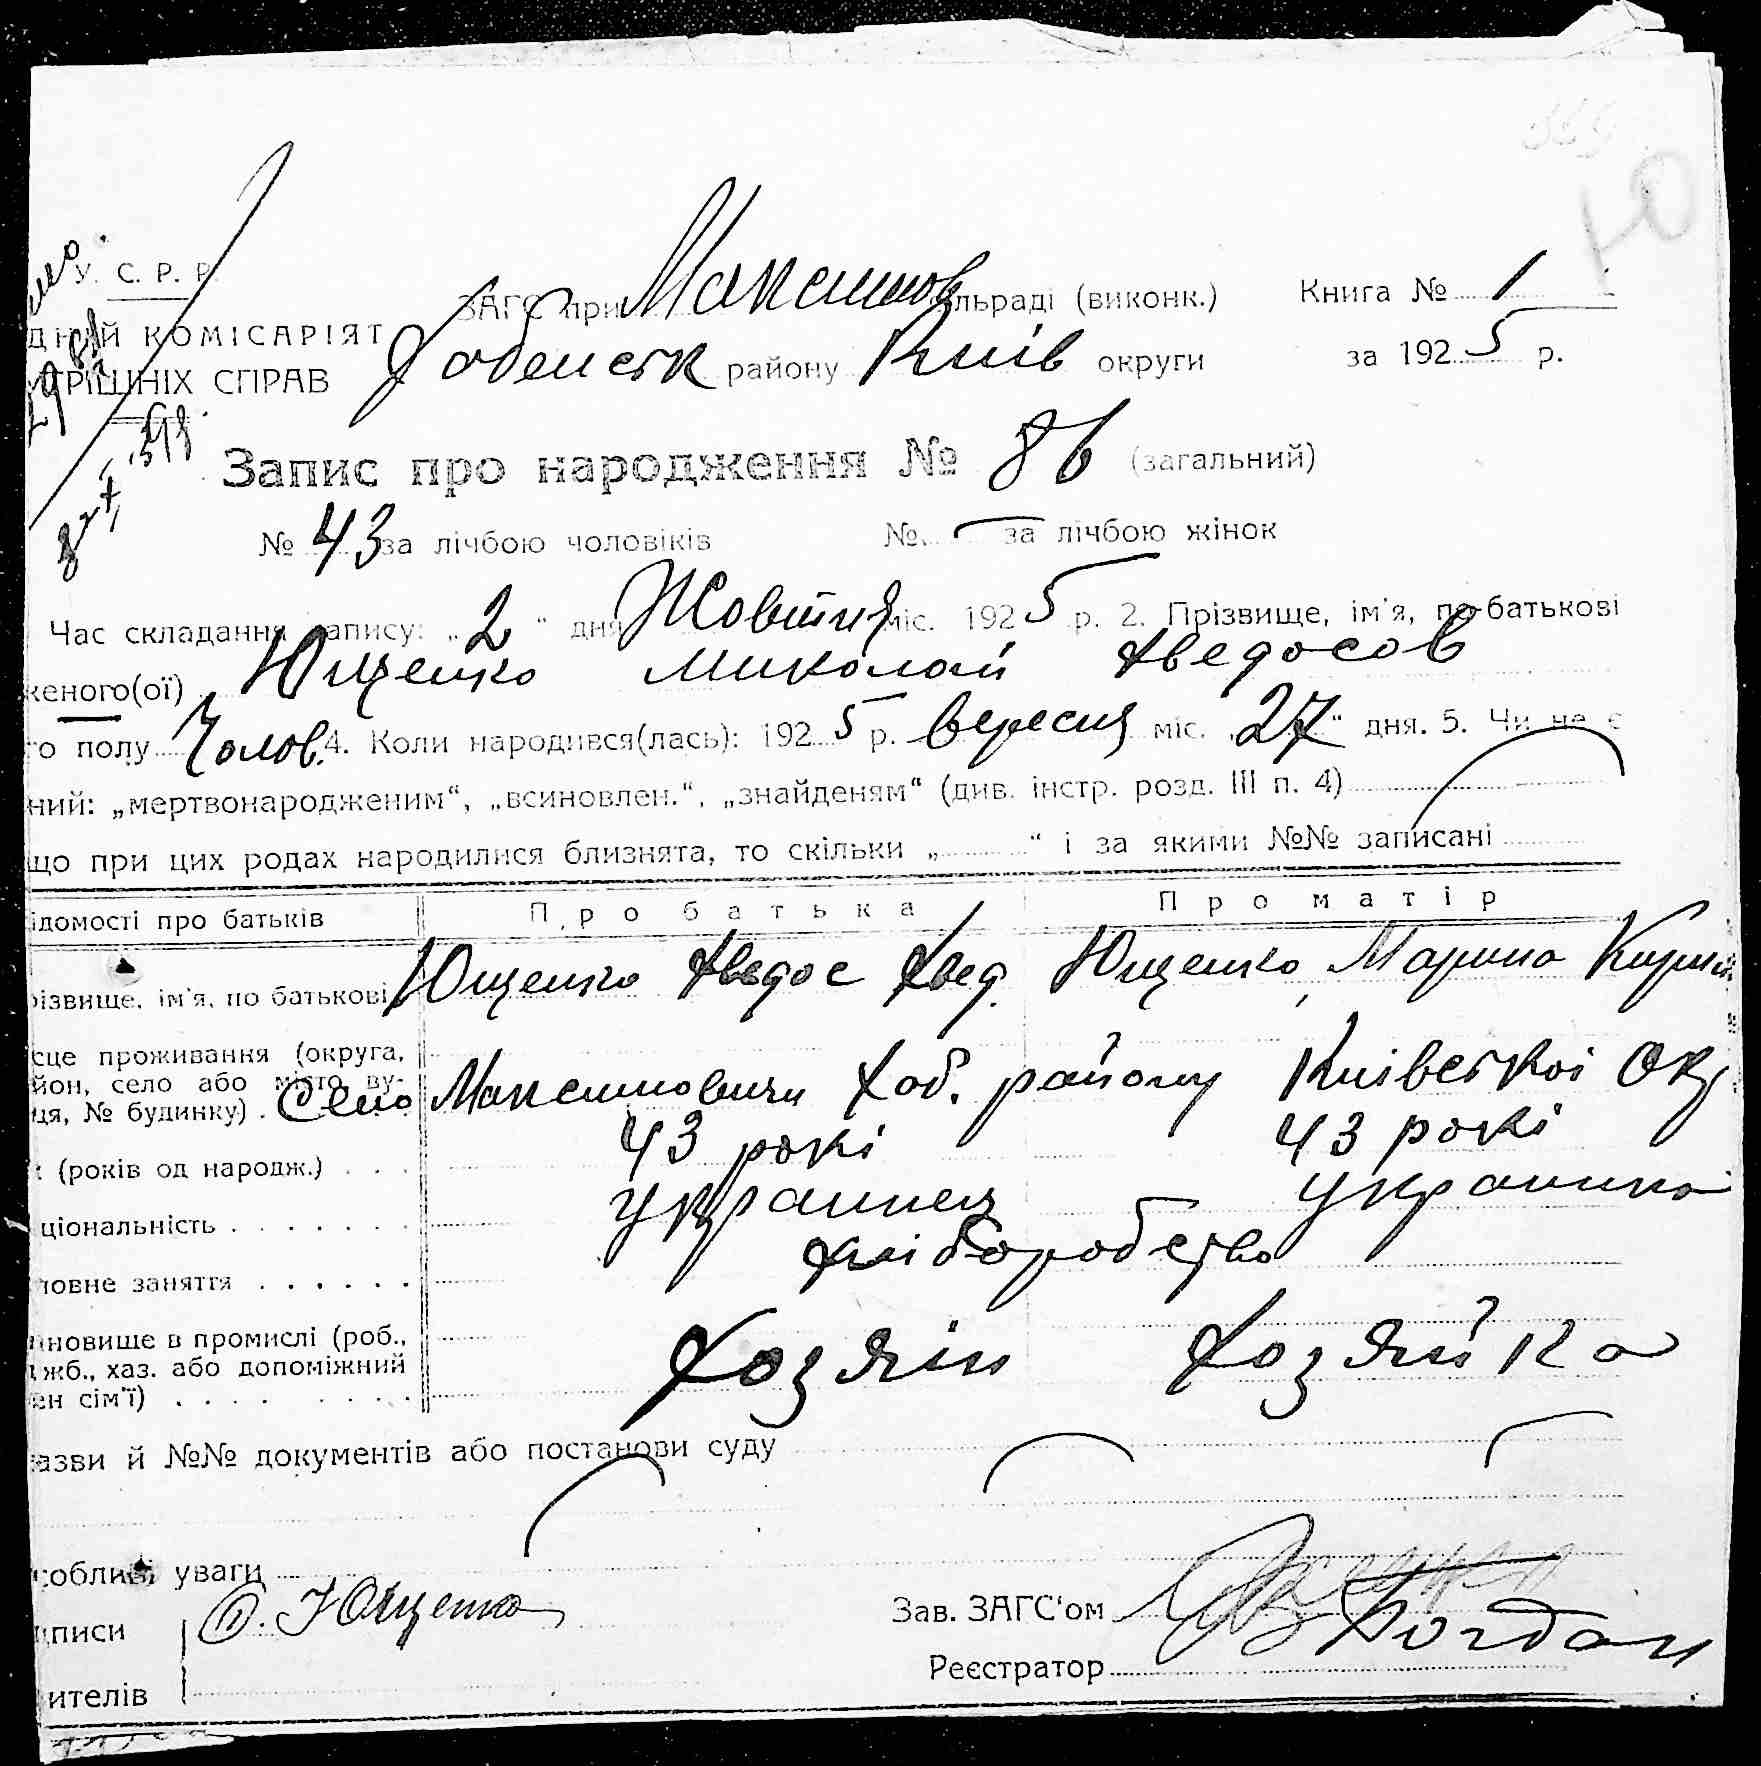 У. С. Р. Р.
ЗАГС при Максимов льраді (виконк.) Книга № 1
дний КОМІСАРІЯТ
трішніх СПРАВ Хабенськ району Київ округи за 1925 р.
Запис про народження № 86 (загальний)
№ 43 за лічбою чоловіків № — за лічбою жінок
Час складання запису: „2“ дня Жовтня міс. 1925 р. 2. Прізвище, ім'я, по-батькові
женого(ої) Ющенко Миколай Хведосов
го полу Чолов. 4. Коли народився(лась): 1925 р. вересня міс. „27“ дня. 5. Чи не є
ний: „мертвонародженим“, „всиновлен.“, „знайденям“ (див. інстр. розд. III п. 4)
що при цих родах народилися близнята, то скільки „ “ і за якими №№ записані
ідомості про батьків Про батька Про матір
різвище, ім'я, по батькові Ющенко Хведос Хвед. Ющенко Марина
сце проживання (округа,
йон, село або місто, ву-
ця, № будинку) . Село Максимовичи Хаб. району Київської Окр
к (років од народж.) . . . 43 рокі 43 рокі
ціональність . . . . . . . Украинец Украинка
ловне заняття . . . . . . хліборобство
ановище в промислі (роб.,
ужб., хаз. або допоміжний Хозяін Хозяйка
ен сім'ї) . . . .
азви й №№ документів або постанови суду
собливі уваги
дписи Ф. Ющенко Зав. ЗАГС'ом
Реєстратор Богдан
ителів